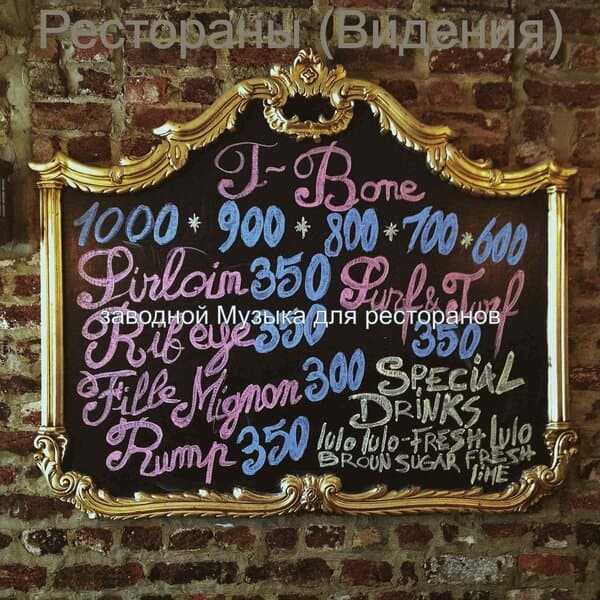 Рестораны (Видения)
T-Bone
1000 * 900 * 800 * 700 * 600
Sirloin 350 Surf & Turf
заводной Музыка для ресторанов
Rib eye 350 350
Fille Mignon 300 SPECIAL
DRINKS
Rump 350 lulo lulo-FRESH lulo
BROUN SUGAR FRESH
liME